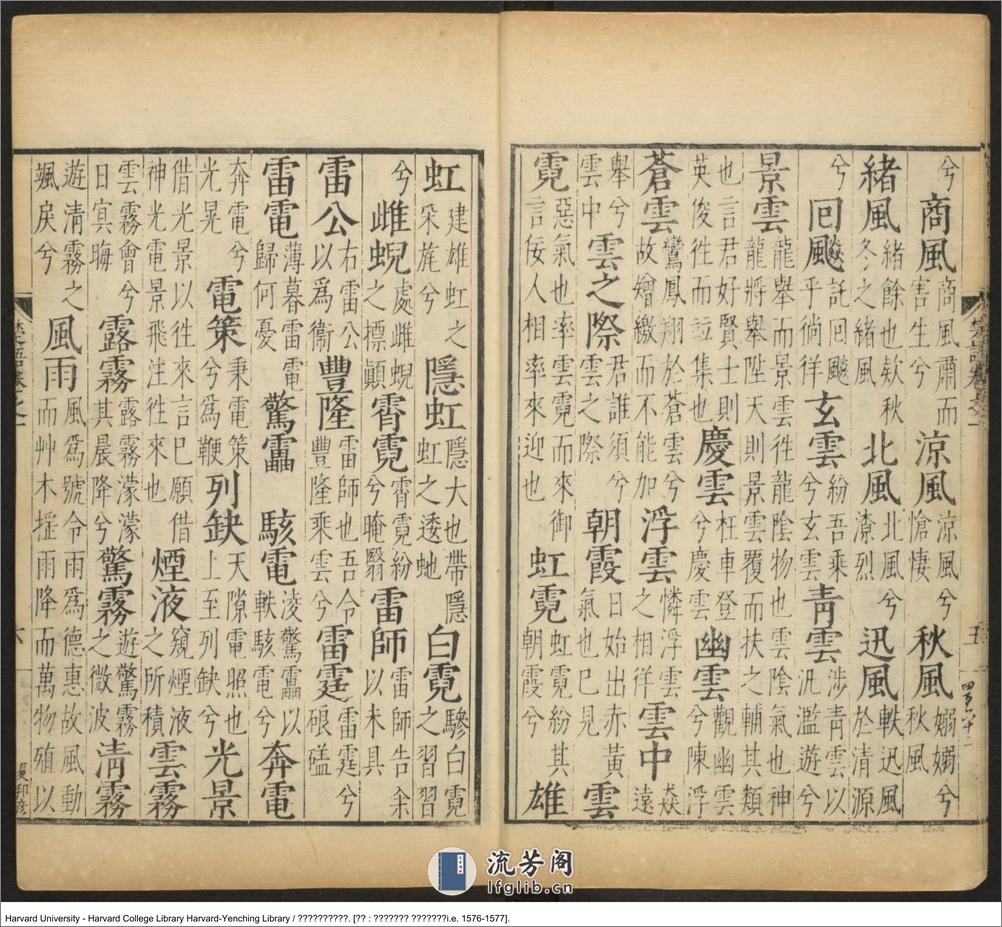 兮商風商風肅而害生兮涼風涼風兮愴悽秋風嫋嫋兮秋風
緒風緒餘也欸秋冬之緒風北風北風兮潦烈迅風軼迅風於清源
兮囘飈託囘飈乎徜徉玄雲紛吾乘兮玄雲青雲涉青雲以汎濫遊兮
景雲龍舉而景雲往龍陰物也雲陰氣也神龍將舉陞天則景雲覆而扶之輔其類
也言君好賢士則英俊往而竝集也慶雲枉車登兮慶雲幽雲觀幽雲兮陳浮
蒼雲鸞鳳翔於蒼雲兮故矰繳而不能加浮雲憐浮雲之相徉雲中猋遠
舉兮雲中雲之際君誰須兮雲之際朝霞日始出赤黃氣也已見雲
霓惡氣也率雲霓而來御言佞人相率來迎也虹霓虹霓紛其朝霞兮雄
五
虹建雄虹之采旄兮隱虹隱大也帶隱虹之透虵白霓驂白霓之習習
兮雌蜺處雌蜺之標顛霄霓霄霓紛兮晻翳雷師雷師告余以未具
雷公右雷公以爲衞豐隆雷師也吾令豐隆乘雲兮雷霆雷霆兮硠磕
雷電薄暮雷電歸何憂驚靁駭電凌驚靁以軼駭電兮奔電
奔電兮光晃電策秉電策兮爲鞭列缺天隙電照也上至列缺兮光景
借光景以往來言已願借神光電景飛注往來也煙液窺煙液之所積雲霧
雲霧會兮日冥晦露霧露霧濛濛其晨降兮驚霧遊驚霧之微波清霧
遊清霧之颯戾兮風雨風爲號令雨爲德惠故風動而艸木搖雨降而萬物殖以
六
流芳阁
lfglib.cn
Harvard University - Harvard College Library Harvard-Yenching Library / ??????????. [?? : ??????? ???????i.e. 1576-1577].